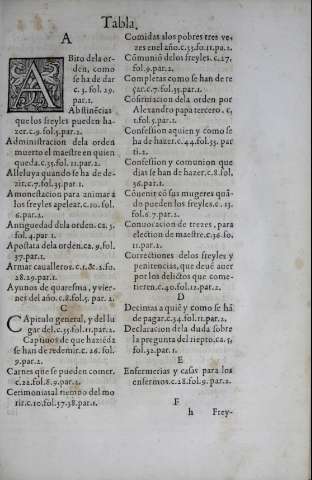 Tabla.
A
ABito dela or-
den, como
se ha de dar
c. 3. fol. 29.
par.1.
Abstinẽcias
que los freyles pueden ha-
zer.c.9.fol.5.par.2.
Administracion dela orden
muerto el maestre en quien
queda.c.35.fol.11.par.2.
Alleluya quando se ha de de-
zir.c.7.fol.35.par.1.
Amonestacion para animar a
los freyles apelear.c.10.fol.
6.par.2.
Antiguedad dela orden.ca.3.
fol.4.par 1.
Apostata dela orden.ca.9.fol.
37.par.1.
Armar caualleros.c.1.&.2.fo.
28.29.par.1.
Ayunos de quaresma, y vier-
nes del año.c.8.fol.5. par. 2.
C
CApitulo general, y del lu
gar del.c.35.fol.11.par.2.
Captiuos de que haziẽda
se han de redemir.c.26. fol.
9.par.2.
Carnes que se pueden comer.
c.22.fol.8.9.par.2.
Cerimonias al tiempo del mo
rir.c.10.fol.37.38.par.1.
Comidas alos pobres tres ve-
zes enel año.c.33.fo.11.pa.2.
Cõmunió delos freyles.c.27.
fol.9.par.2.
Completas como se han de re
çar.c.7.fol.35.par.1.
Cõfirmacion dela orden por
Alexandro papa tercero. c.
1.fol.3.par.1.
Confession aquien y como se
ha de hazer.c.44.fol.33. par
ti.2.
Confession y comunion que
dias se han de hazer.c.8.fol.
36.par.1.
Cõuenir cõ sus mugeres quã-
do pueden los freyles.c.13.
fol.6.7.par.2.
Conuocacion de trezes, para
election de maestre.c.36.fo.
11.par.2.
Correctiones delos freyles y
penitencias, que deuẽ auer
por los delictos que come-
tieren.c.40.fol.12.par.2.
D
Decimas a quiẽ y como se hã
de pagar.c.34.fol.11.par.2.
Declaracion dela duda sobre
la pregunta del riepto.ca.5,
fol.32.par.1.
E
Enfermerias y casas para los
enfermos.c.28.fol.9. par.2.
F
h Frey-